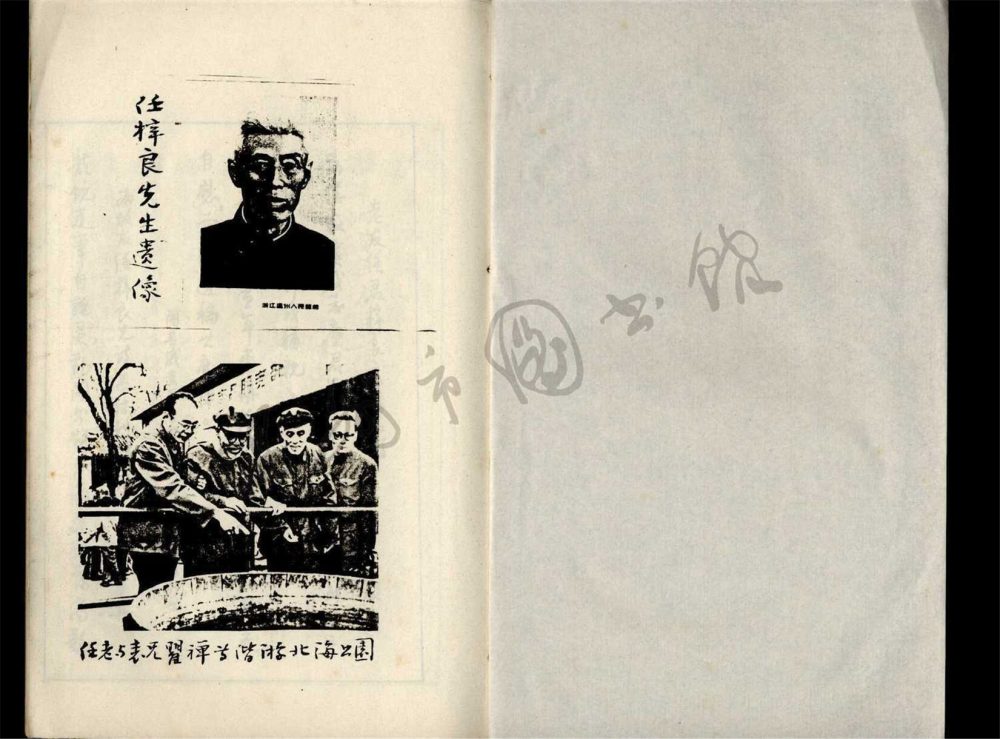 任梓良先生遗像
浙江温州人民照相
任老与表兄瞿禅等偕游北海公园
市圖书馆